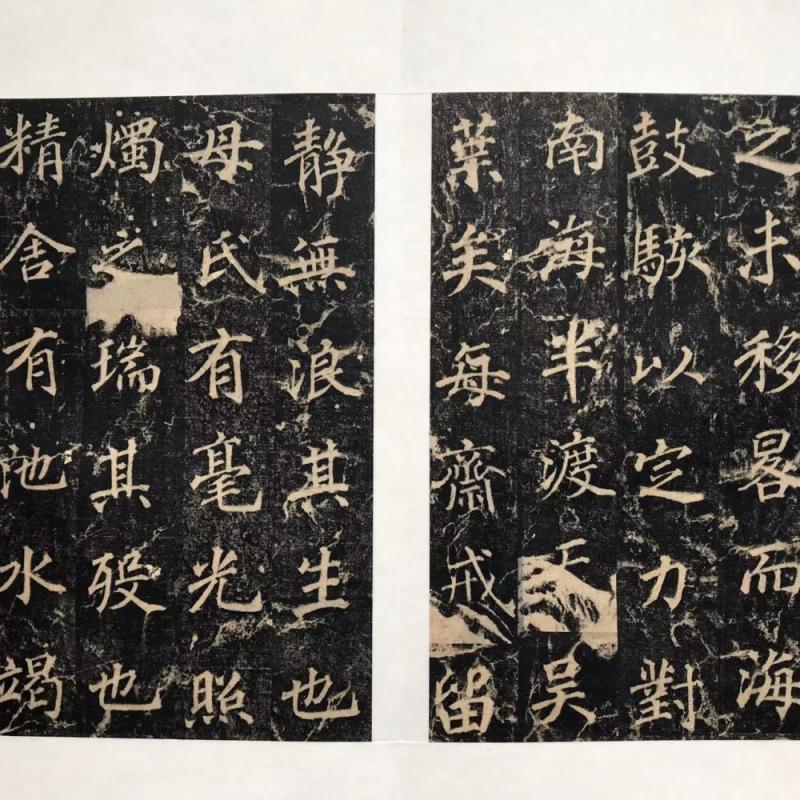 之未移晷而海
鼓駭以定力對
南海半渡吴
葉矣每齋戒留
静無浪其生也
母氏有毫光照
燭之瑞其歿也
精舍有池水竭